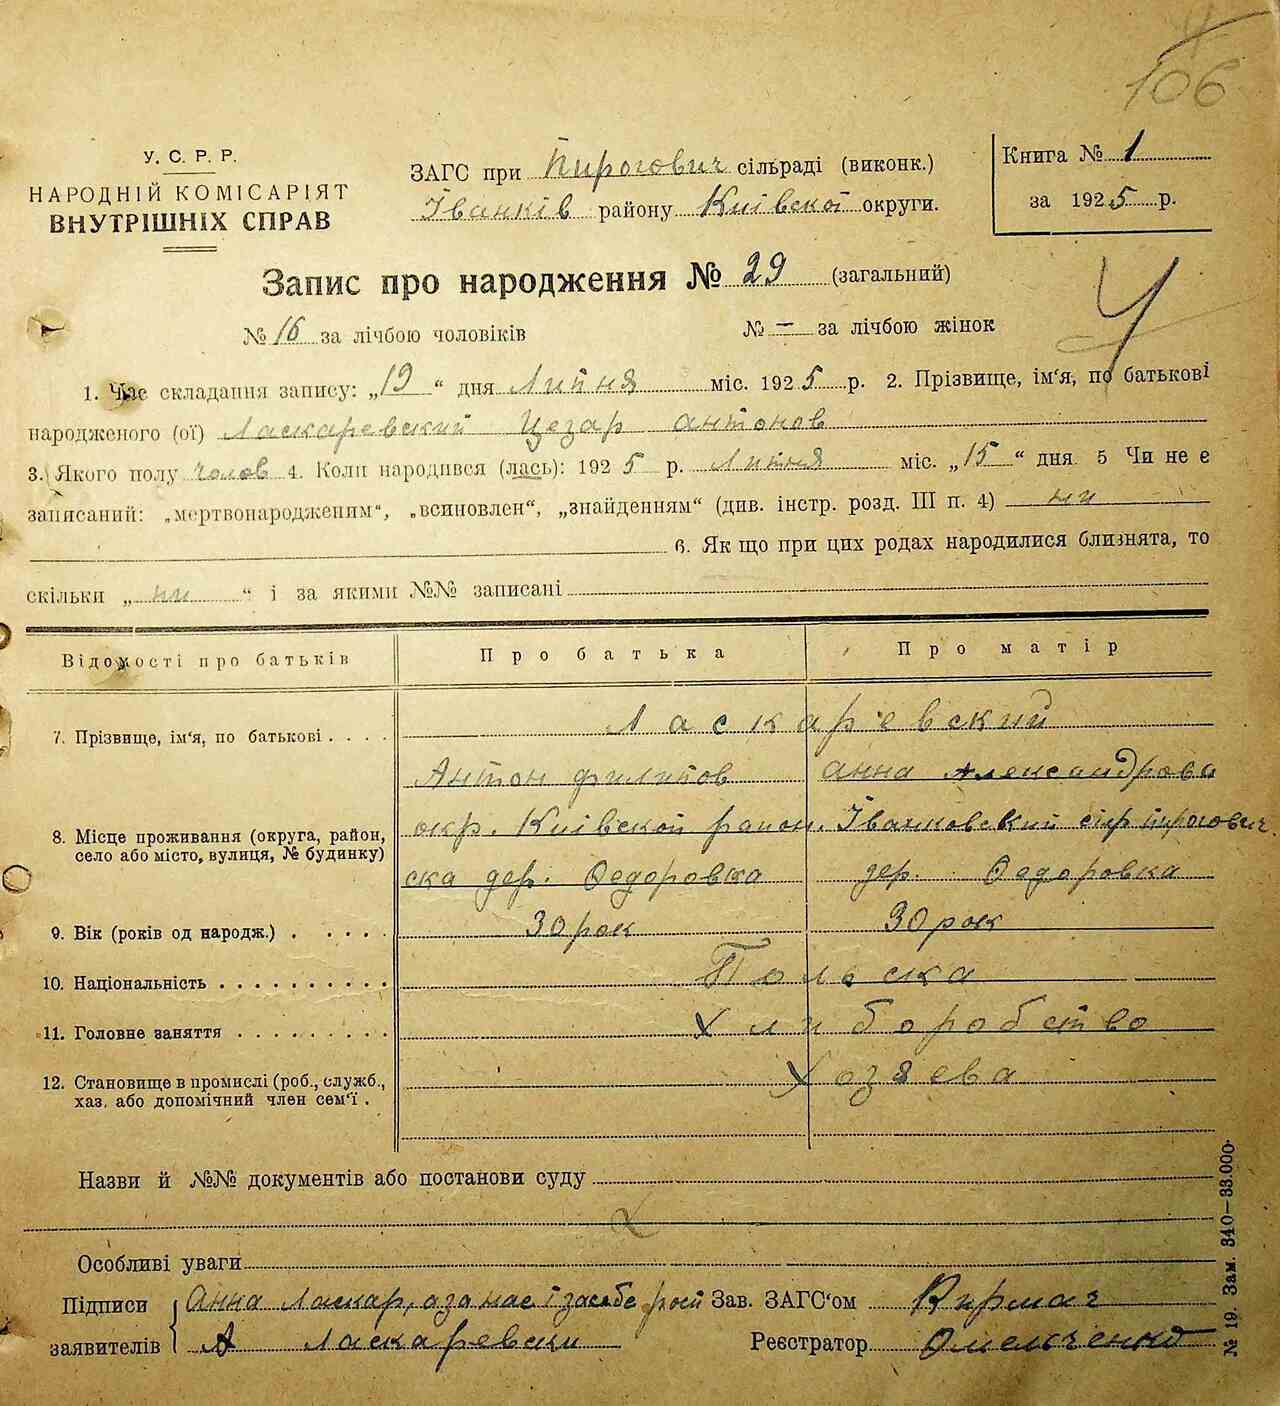 106
У. С. Р. Р.
НАРОДНІЙ КОМІСАРІЯТ
ВНУТРІШНІХ СПРАВ
ЗАГС при Пирогович сільраді (виконк.)
Іванків району Київской округи.
Книга № 1
за 1925 р.
Запис про народження № 29 (загальний)
№ 16 за лічбою чоловіків № — за лічбою жінок
1. Час складання запису: „19“ дня Липня міс. 1925 р. 2. Прізвище, ім‘я, по батькові
народженого (ої) Ласкаревский Цезар антонов
3. Якого полу чолов 4. Коли народився (лась): 1925 р. Липня міс. „15“ дня. 5 Чи не є
записаний: „мертвонародженим“, „всиновлен“, „знайденням“ (див. інстр. розд. III п. 4) ни
6. Як що при цих родах народилися близнята, то
скільки „ни“ і за якими №№ записані
Відомості про батьків Про батька Про матір
7. Прізвище, ім‘я, по батькові . . . . Ласкаревский
Антон филипов анна Александрова
8. Місце проживання (округа, район, село або місто, вулиця, № будинку) окр. Київской район. Іванковский с/р пирогович
ска дер. Федоровка дер. Федоровка
9. Вік (років од народж.) . . . . . 30 рок 30 рок
10. Національність . . . . . . . . . . Польска
11. Головне заняття . . . . . . . . . Хлиборобство
12. Становище в промислі (роб., служб., хаз. або допомічний член сем‘ї . Хозяева
Назви й №№ документів або постанови суду
Особливі уваги
Підписи заявителів
Анна Ласкар, а за нас і засебе рост
А Ласкаревски
Зав. ЗАГС‘ом Кирмач
Реєстратор Омельченко
№ 19. Зам. 340—33.000.